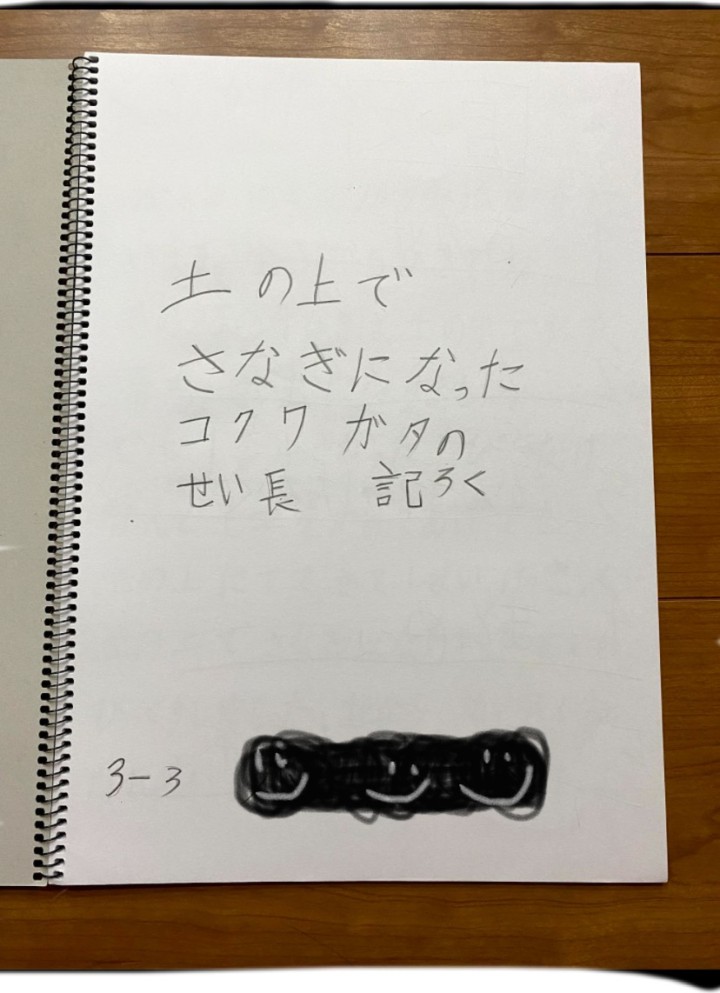 土の上で
さなぎになった
コクワガタの
せい長 記ろく
3-3